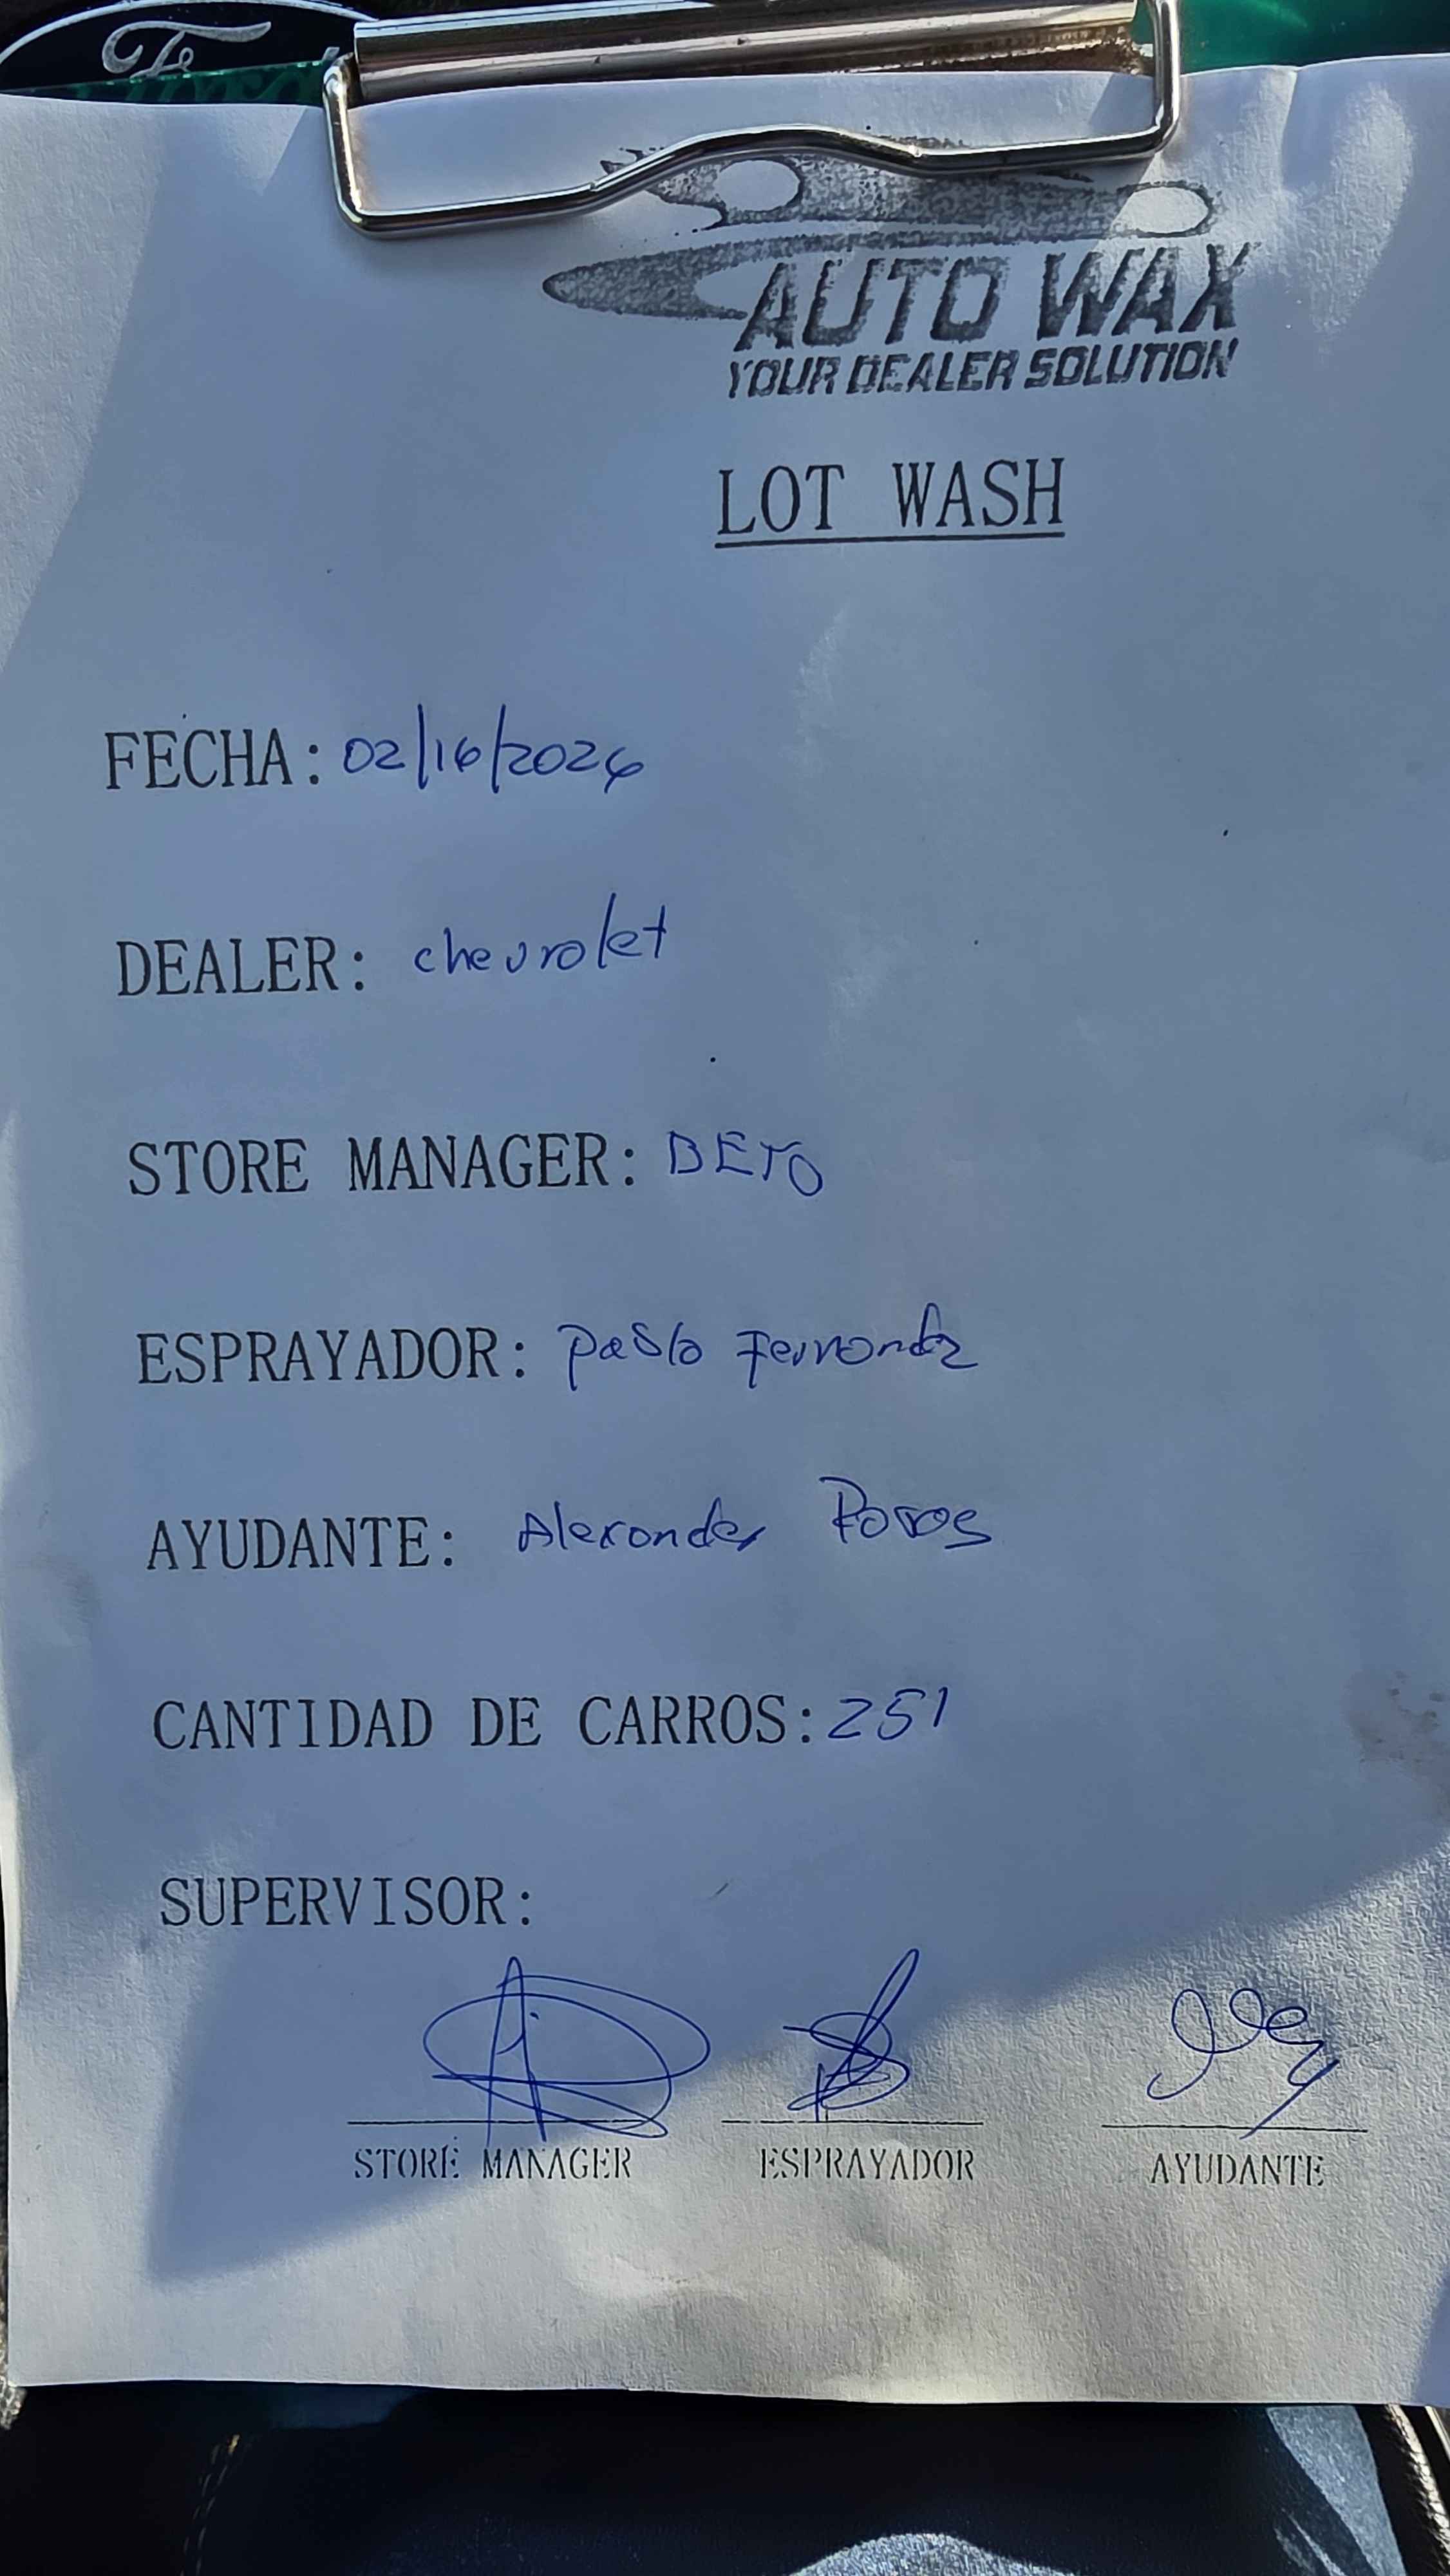 Ford
AUTO WAX
YOUR DEALER SOLUTION
LOT WASH
FECHA: 02/16/2026
DEALER: chevrolet
STORE MANAGER: BETO
ESPRAYADOR: Pablo Fernandz
AYUDANTE: Alexander
CANTIDAD DE CARROS: 251
SUPERVISOR:
STORE MANAGER ESPRAYADOR AYUDANTE